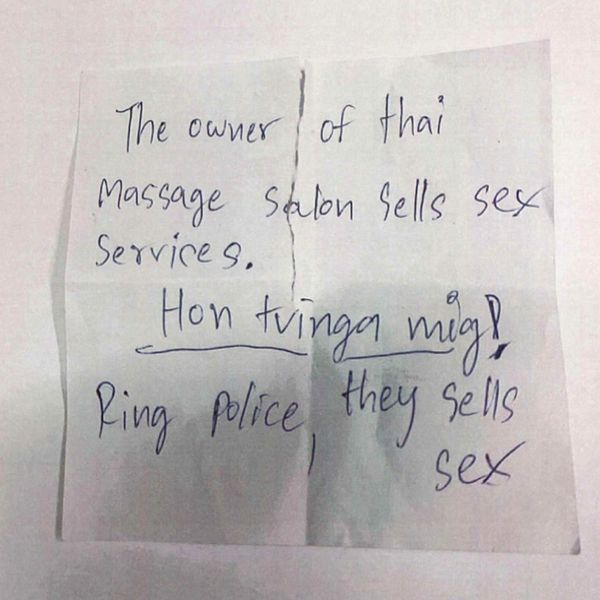 The owner of thai
Massage Salon Sells sex
Services.
Hon tvinga mig!
Ring police, they sells
sex